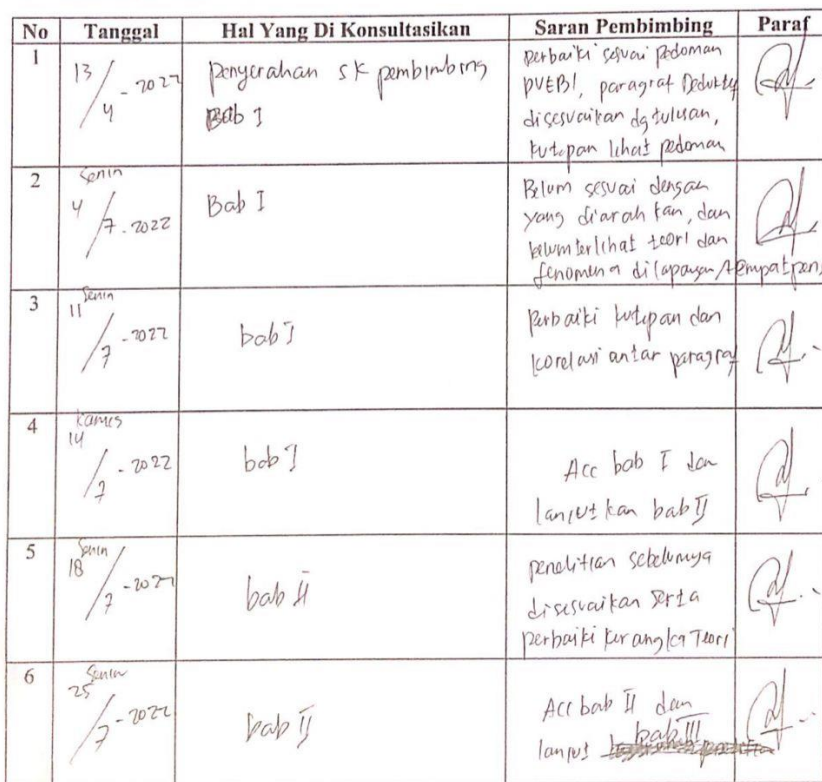 No Tanggal Hal Yang Di Konsultasikan Saran Pembimbing Paraf
1
13/4 - 2022
Penyerahan SK pembimbing
Bab I
Perbaiki sesuai pedoman
PUEBI, paragraf Deduktif
disesuaikan dg tulisan,
kutipan lihat pedoman
2
Senin
4/7 - 2022
Bab I
Belum sesuai dengan
yang diarahkan, dan
belum terlihat teori dan
fenomena dilapangan/tempat
3
Senin
11/7 - 2022
bab I
Perbaiki kutipan dan
korelasi antar paragraf
4
Kamis
14/7 - 2022
bab I
Acc bab I dan
lanjutkan bab II
5
Senin
18/7 - 2022
bab II
penelitian sebelumnya
disesuaikan serta
perbaiki kerangka Teori
6
Senin
25/7 - 2022
bab II
Acc bab II dan
lanjut bab III